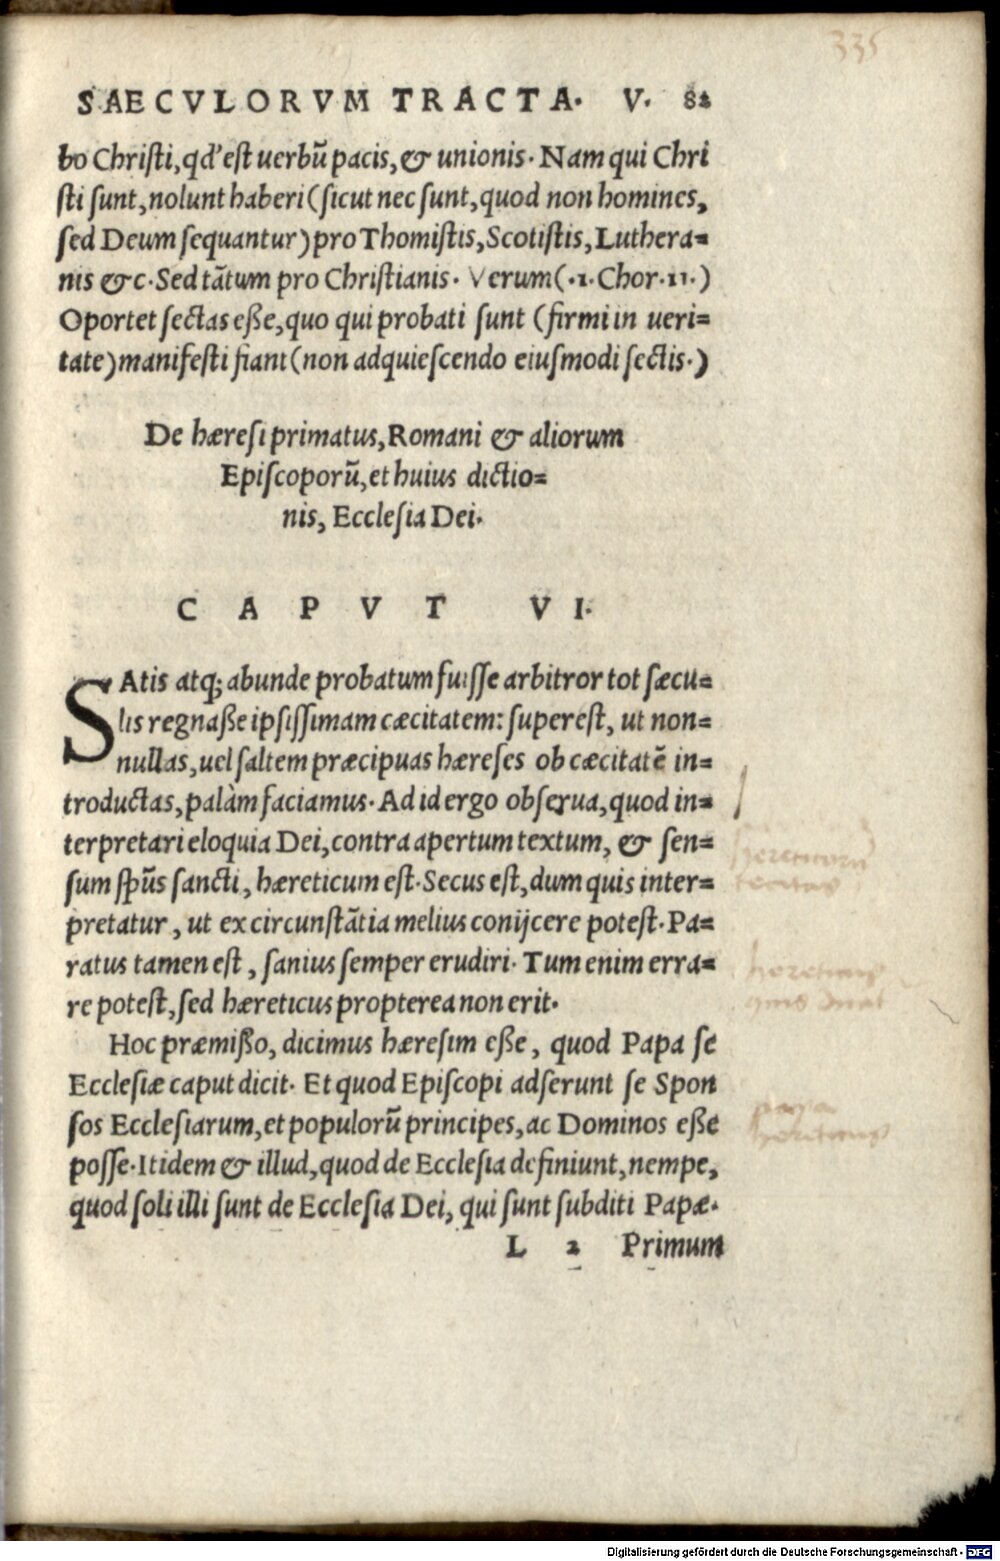 335
SAECVLORVM TRACTA. V. 82
bo Christi, qd' est uerbũ pacis, & unionis. Nam qui Chri
sti sunt, nolunt haberi (sicut nec sunt, quod non homines,
sed Deum sequantur) pro Thomistis, Scotistis, Luthera=
nis &c. Sed tãtum pro Christianis. Verum (.1. Chor. 11.)
Oportet sectas eße, quo qui probati sunt (firmi in ueri=
tate) manifesti fiant (non adquiescendo eiusmodi sectis.)
De hæresi primatus, Romani & aliorum
Episcoporũ, et huius dictio=
nis, Ecclesia Dei.
CAPVT VI.
SAtis atq; abunde probatum fuisse arbitror tot sæcu=
lis regnaße ipsissimam cæcitatem: superest, ut non=
nullas, uel saltem præcipuas hæreses ob cæcitatẽ in=
troductas, palàm faciamus. Ad id ergo obserua, quod in=
terpretari eloquia Dei, contra apertum textum, & sen=
sum sp̃us sancti, hæreticum est. Secus est, dum quis inter=
pretatur, ut ex circunstãtia melius conijcere potest. Pa=
ratus tamen est, sanius semper erudiri. Tum enim erra=
re potest, sed hæreticus propterea non erit.
Hoc præmißo, dicimus hæresim eße, quod Papa se
Ecclesiæ caput dicit. Et quod Episcopi adserunt se Spon
sos Ecclesiarum, et populorũ principes, ac Dominos eße
posse. Itidem & illud, quod de Ecclesia definiunt, nempe,
quod soli illi sunt de Ecclesia Dei, qui sunt subditi Papæ.
L 2 Primum
hereticus
papa
hereticus
Digitalisierung gefördert durch die Deutsche Forschungsgemeinschaft - DFG